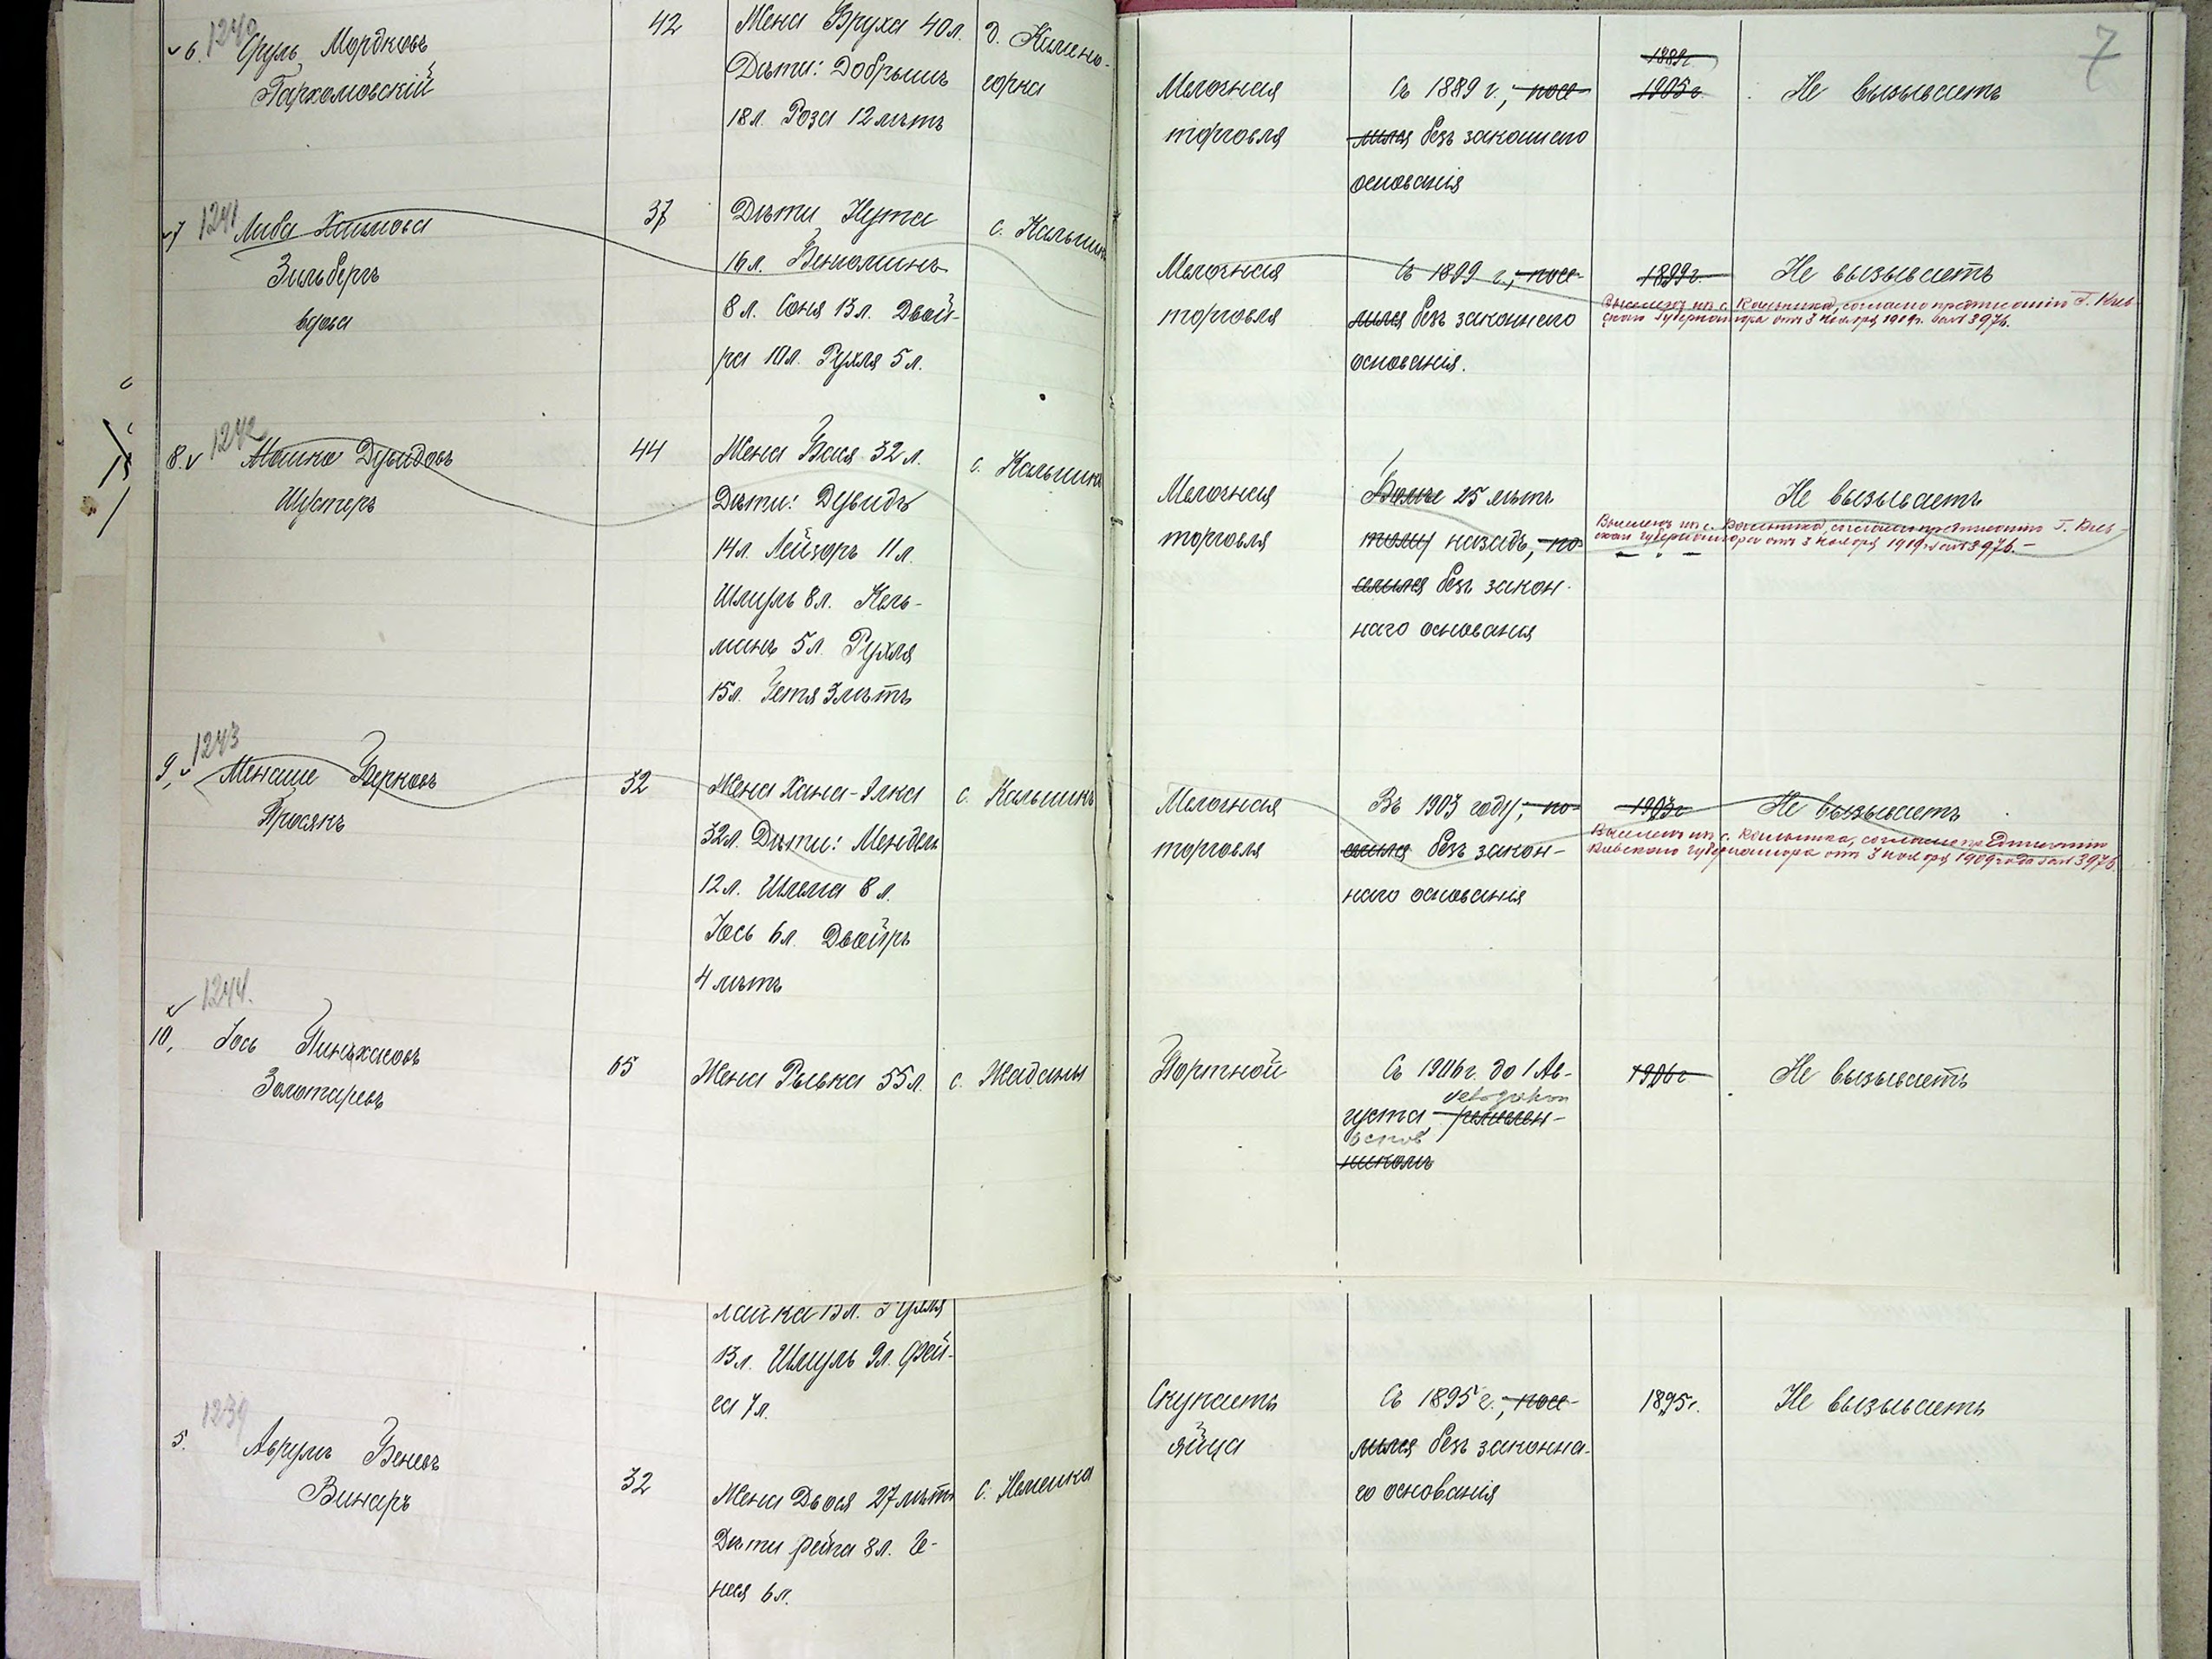 7
6. 1240 Сруль Мордковъ
Пархомовскій
42
Жена Бруха 40 л.
Дѣти: Добрышъ
18 л. Роза 12 лѣтъ
д. Камено-
горка
Мелочная
торговля
Съ 1889 г., посе-
лился безъ законнаго
основанія
1889 г
1905 г.
Не вызываетъ
7 1241 Либа Хаимова
Зильбергъ
вдова
37
Дѣти Нута
16 л. Веніоминъ
8 л. Соня 13 л. Двой-
ра 10 л. Рухля 5 л.
с. Кальникъ
Мелочная
торговля
Съ 1899 г., посе-
лился безъ законнаго
основанія.
1899 г.
Не вызываетъ
Выселенъ изъ с. Кальника, согласно предписанію Г. Кіев-
скаго Губернатора отъ 3 ноября 1909 г. за № 3976.
8. 1242 Мошко Дувидовъ
Шустеръ
44
Жена Бася 32 л.
Дѣти: Дувидъ
14 л. Лейзоръ 11 л.
Шмуль 8 л. Кель-
манъ 5 л. Рухля
15 л. Гетя 3 лѣтъ
с. Кальникъ
Мелочная
торговля
Болѣе 25 лѣтъ
тому назадъ, по-
селился безъ закон-
наго основанія
Не вызываетъ
Выселенъ изъ с. Кальника, согласно предписанію Г. Кіев-
скаго Губернатора отъ 3 ноября 1909 г. за № 3976. —
9. 1243
Менаше Берковъ
Просякъ
32
Жена Хана-Элка
32 л. Дѣти: Мендель
12 л. Шлема 8 л.
Іось 6 л. Двойръ
4 лѣтъ
с. Кальникъ
Мелочная
торговля
Въ 1903 году, по-
селился безъ закон-
наго основанія
1903 г
Не вызываетъ
Выселенъ изъ с. Кальника, согласно предписанію
Кіевскаго Губернатора отъ 3 ноября 1909 года за № 3976.
1244.
10. Іось Пинхасовъ
Золотаревъ
65
Жена Рывка 55 л.
с. Жаданы
Портной
Съ 1906 г. до 1 Ав-
густа, ремеслен-
никомъ
1906 г
Не вызываетъ
13 л. Шмуль 9 л. Фей-
га 7 л.
1239
5. Аврумъ Беневъ
Винаръ
32
Жена Двося 27 лѣтъ
Дѣти Рейза 8 л. Ге-
нея 6 л.
с. Неменка
Скупаетъ
яйца
Съ 1895 г., посе-
лился безъ законна-
го основанія
1895 г.
Не вызываетъ